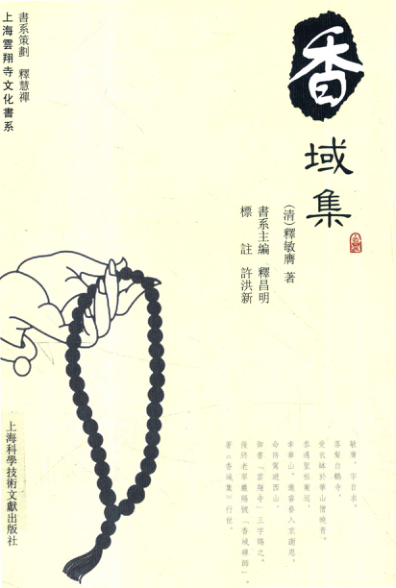 香域集
(清)釋敏膺 著
書系主編 釋昌明
標 註 許洪新
書系策劃 釋慧禪
上海雲翔寺文化書系
敏膺，字目求。
落髮白鶴寺。
受衣缽於華山僧曉青。
恭遇聖祖南巡，
幸華山，進香藝入京謝恩，
命侍駕遊西山。
御書「雲翔寺」三字賜之。
復終老翠巖賜號「香域禪師」。
著《香域集》行世。
上海科學技術文獻出版社